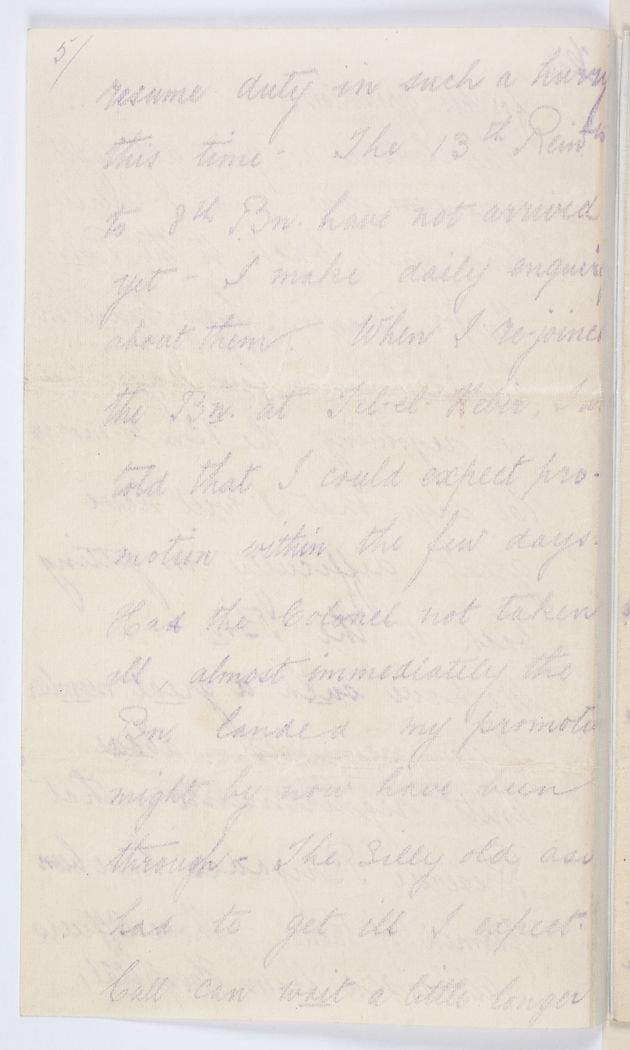 5/
resume duty in such a hurry
this time - The 13th Reinfts
to 8th Bn. have not arrived
yet - I make daily enquiry
about them. When I re-joined
the Bn. at Tel-el-Kebir, I
told that I could expect pro-
motion within the few days.
Had the Colonel not taken
ill almost immediately the
Bn. landed my promoti
might by now have been
through - The silly old ass
had to get ill I expect.
Call can wait a little longer